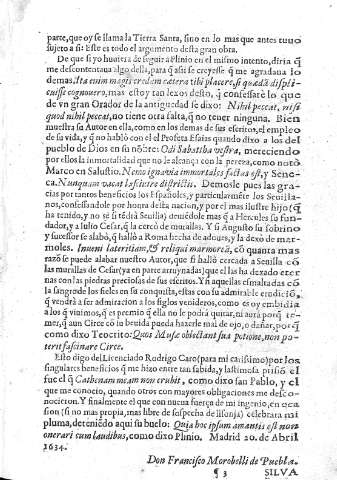 parte, que oy se llama la Tierra Santa, sino en lo mas que antes tuuo
sujeto a si: Este es todo el argumento desta gran obra.
De que si yo huuiera de seguir a Plinio en el mismo intento, diria q̃
me descontentaua algo della, para q̃ assi se creyesse q̃ me agradaua lo
demas. Ita enim magis credam cætera tibi placere, si quædã displi-
cuisse cognouero, mas estoy tan lexos desto, q̃ confessarè lo que
de vn gran Orador de la antiguedad se dixo: Nihil peccat, nisi
quod nihil peccat, no tiene otra falta, q̃ no tener ninguna. Bien
muestra su Autor en ella, como en los demas de sus escritos, el empleo
de su vida, y q̃ no hablò con el el Profeta Esaias quando dixo a los del
pueblo de Dios en su nõbre: Odi Sabatha vestra, mereciendo
por ellos la inmortalidad que no le alcança con la pereza, como notò
Marco en Salustio, Nemo ignauia immortalis factus est, y Sene-
ca. Nunquam vacat lasciuire districtis. Demosle pues las gra-
cias por tantos beneficios los Españoles, y particularmente los Seuilla-
nos, confessandole por honra de la nacion, y por el mas ilustre hijo (q̃
ha tenido, y no se si tẽdrà Seuilla) deuiẽdole mas q̃ a Hercules su fun-
dador, y a Iulio Cesar, q̃ la cercò de murallas. Y si Augusto su sobrino
y sucessor se alabò, q̃ hallò a Roma hecha de adoues, y la dexò de mar-
moles. Inueni lateritiam, & reliqui marmoreã, cõ quanta mas
razõ se puede alabar nuestro Autor, que si hallò cercada a Seuilla cõ
las murallas de Cesar (ya en parte arruynadas) que el las ha dexado eter-
nas con las piedras preciosas de sus escritos. Y si aquellas esmaltadas cõ
la sangre de los fieles en su conquista, estas con su admirable erudiciõ,
q̃ vendrà a ser admiracion a los siglos venideros, como es oy embidia
a los q̃ viuimos, q̃ es premio q̃ ella no le podrà quitar, ni aurà porq̃ te-
mer, q̃ aun Circe cõ su beuida pueda hazerle mal de ojo, o dañar, porq̃
como dixo Teocrito: Quos Musæ oblectant sua potione, non po-
terit fascinare Circe.
Esto digo del Licenciado Rodrigo Caro (para mi carissimo) por los
singulares beneficios que me hizo entre tan subida, y lastimosa prisiõ el
fue el q̃ Cathenam meam non erubit, como dixo san Pablo, y el
que me conocio, quando otros con mayores obligaciones me desco-
nocieron. Y finalmente el que con nueua fuerça de mi ingenio, en oca-
sion (si no mas propia, mas libre de sospecha de lisonja) celebrarà mi
pluma, deteniẽdo aqui su buelo: Quia hoc ipsum amantis est non
onerari eum laudibus, como dixo Plinio. Madrid 20. de Abril
1634.
Don Francisco Morobelli de Puebla.
¶ 3 SILVA